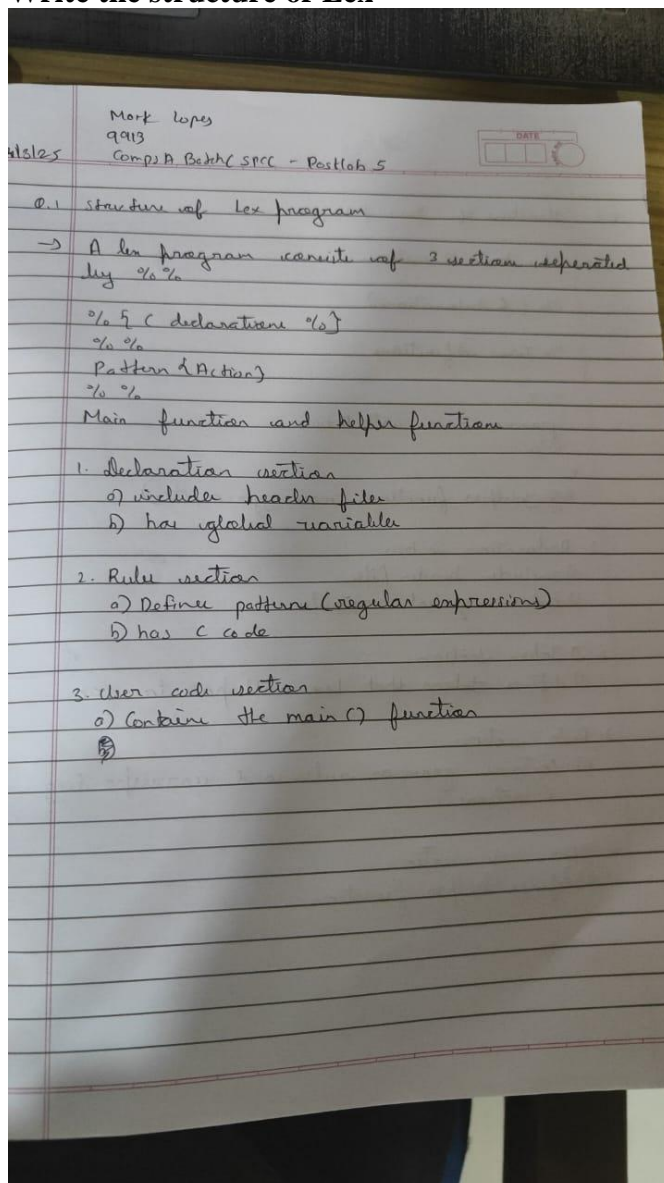 Write the structure of Lex
Mark Lopes
9913
Comps A Batch C SPCC - Postlab 5
DATE
Q.1 Structure of Lex program
→ A lex program consists of 3 sections seperated
by %%
%{ C declarations %}
%%
Pattern {Action}
%%
Main function and helper functions
1. Declaration section
a) includes header files
b) has global variables
2. Rules section
a) Defines patterns (regular expressions)
b) has C code
3. User code section
a) Contains the main() function